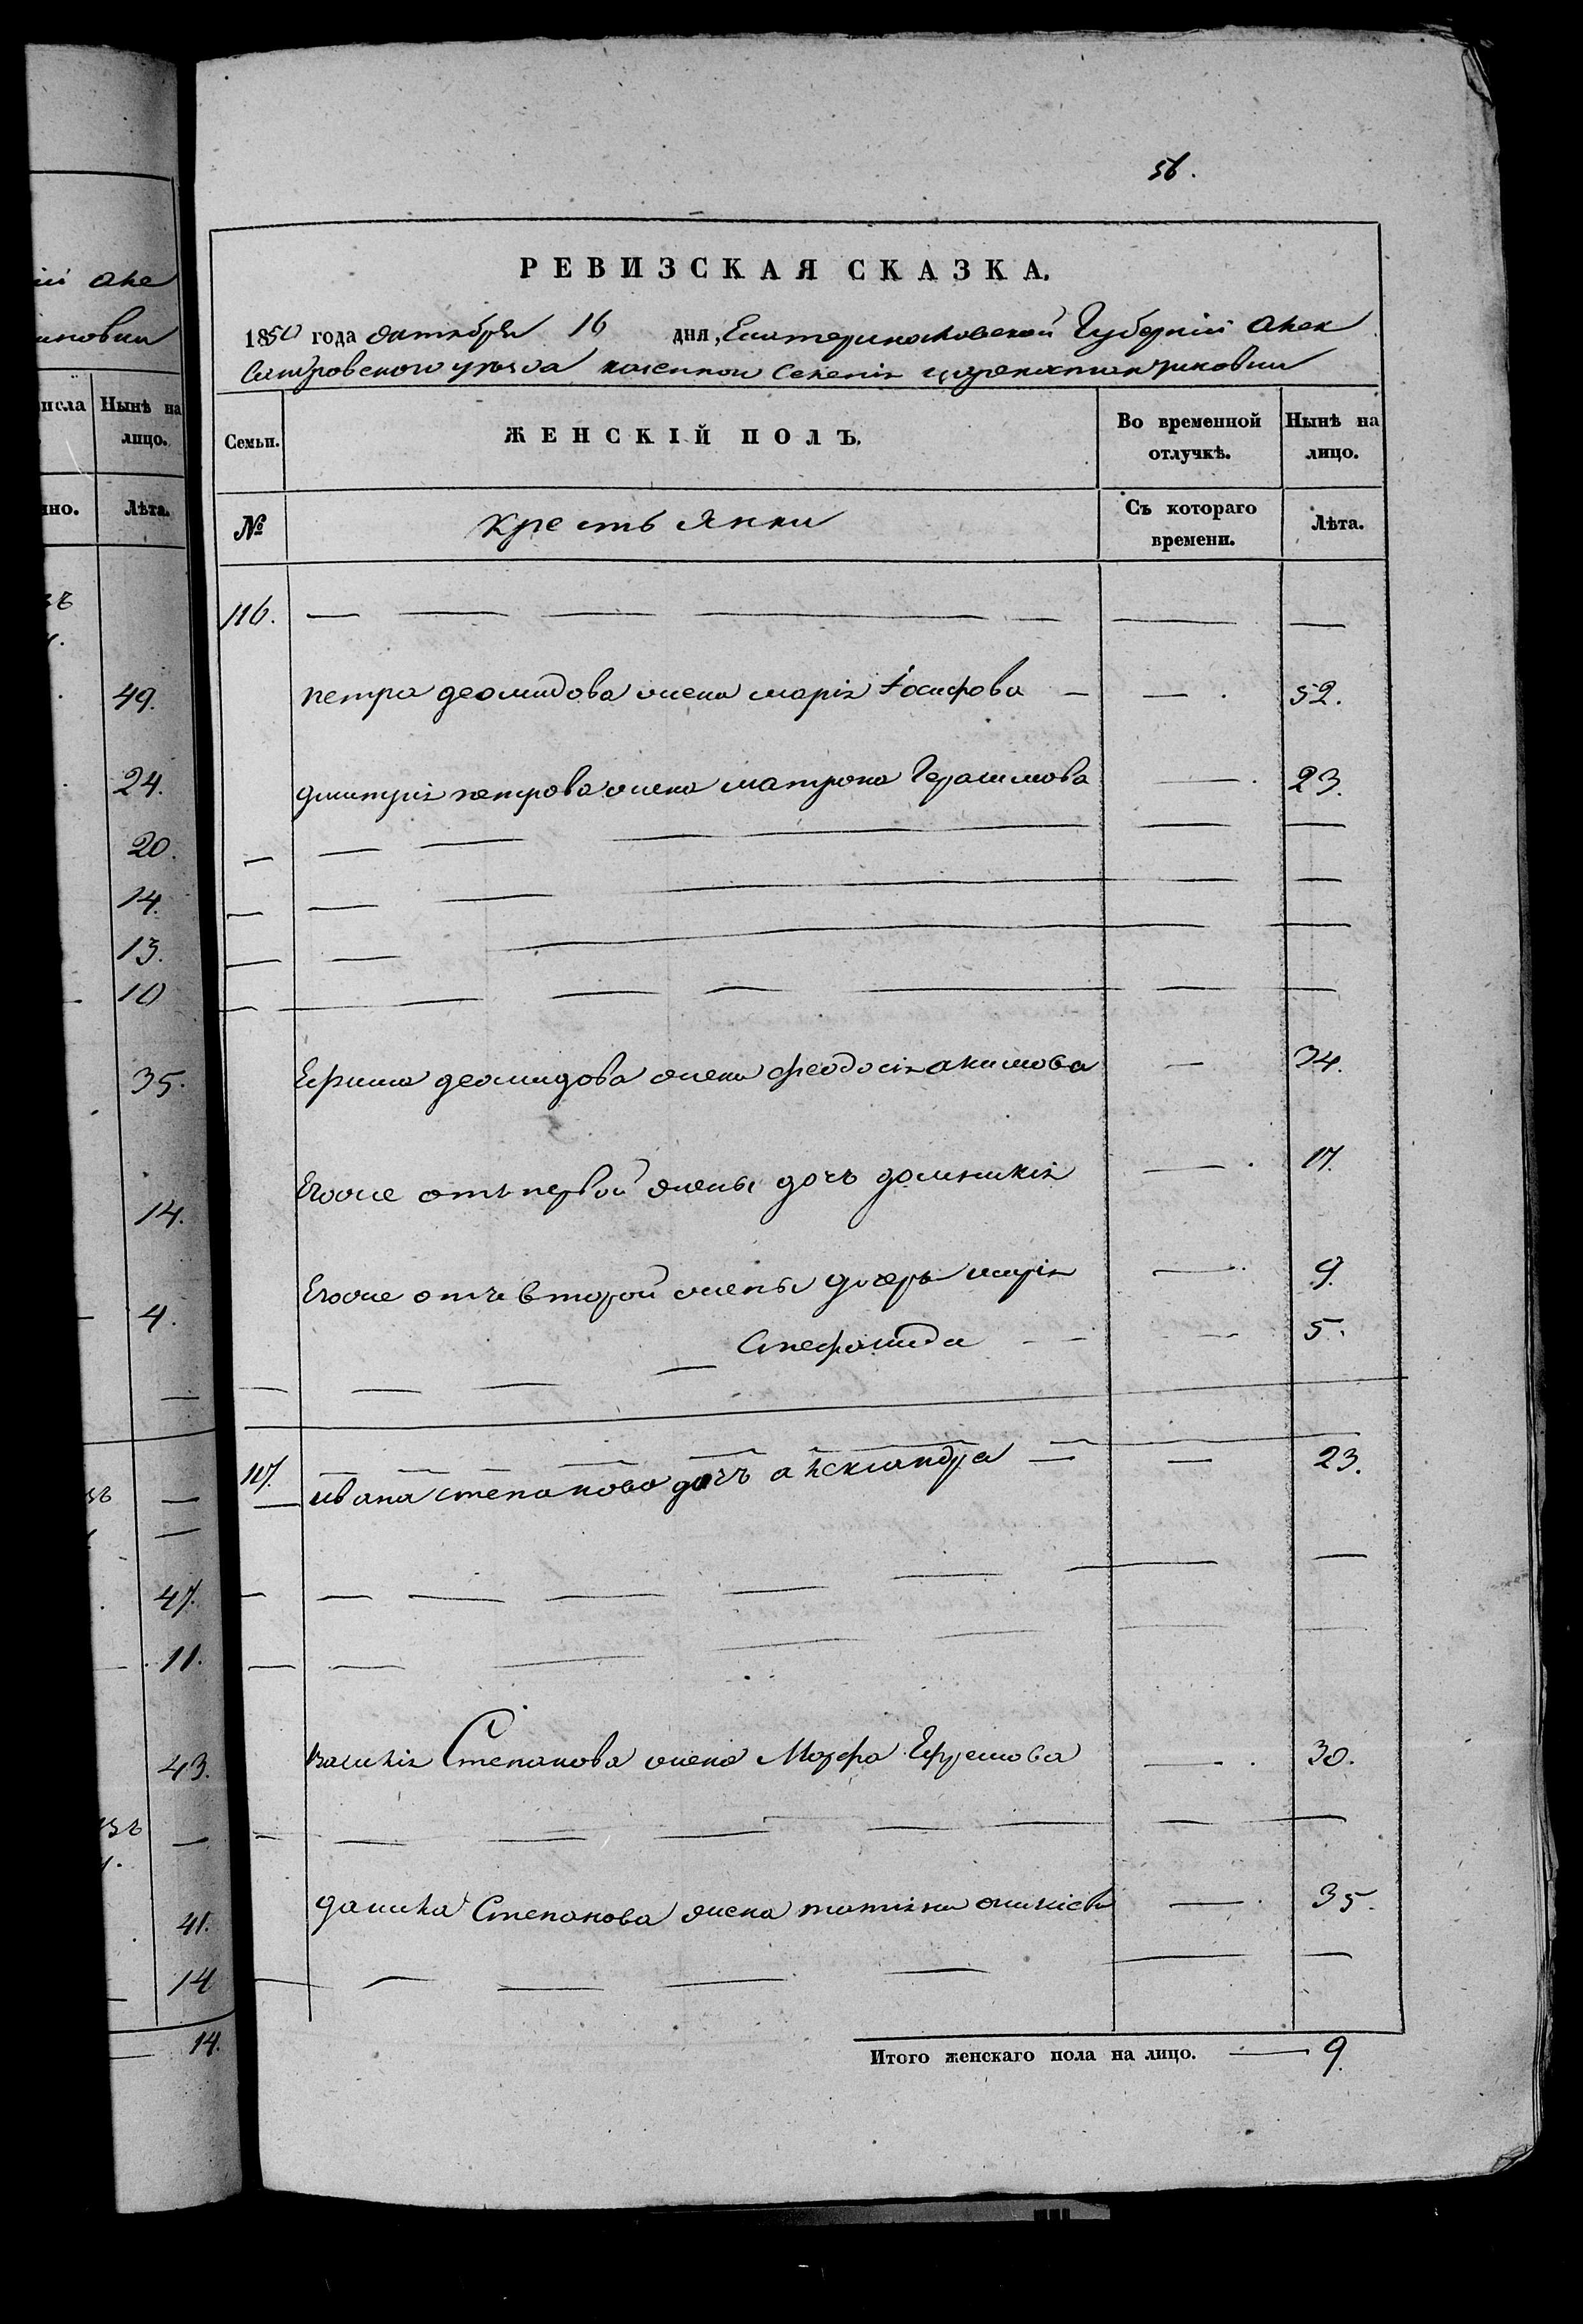 ій Але
иновки
исла Нынѣ на
лицо.
нно. Лѣта.
зъ
49.
24.
20.
14.
13.
10
35.
14.
4.
зъ
47.
11.
43.
изъ
41.
14
14.
56.
РЕВИЗСКАЯ СКАЗКА.
1850 года октября 16 дня, Екатеринославской Губерніи Алек
сандровского уѣзда казенной Селенія
Семьи. ЖЕНСКІЙ ПОЛЪ. Во временной отлучкѣ. Нынѣ на лицо.
№ крестьянки Съ котораго времени. Лѣта.
116.
петра деомидова жена марія Іосифова — — 52.
дмитрія петрова жена матрона Герасимова — 23.
Ефима деомидова жена феодосія акимова — 34.
Егоже отъ первой жены дочь домникія — 17.
Егоже отъ второй жены дочерь марія — 9.
Стефанида — — 5.
117.
ивана степанова дочь александра — — 23.
василія Степанова жена Марфа Ефремова — 30.
данила Степанова жена татіяна — 35.
Итого женскаго пола на лицо. — 9.